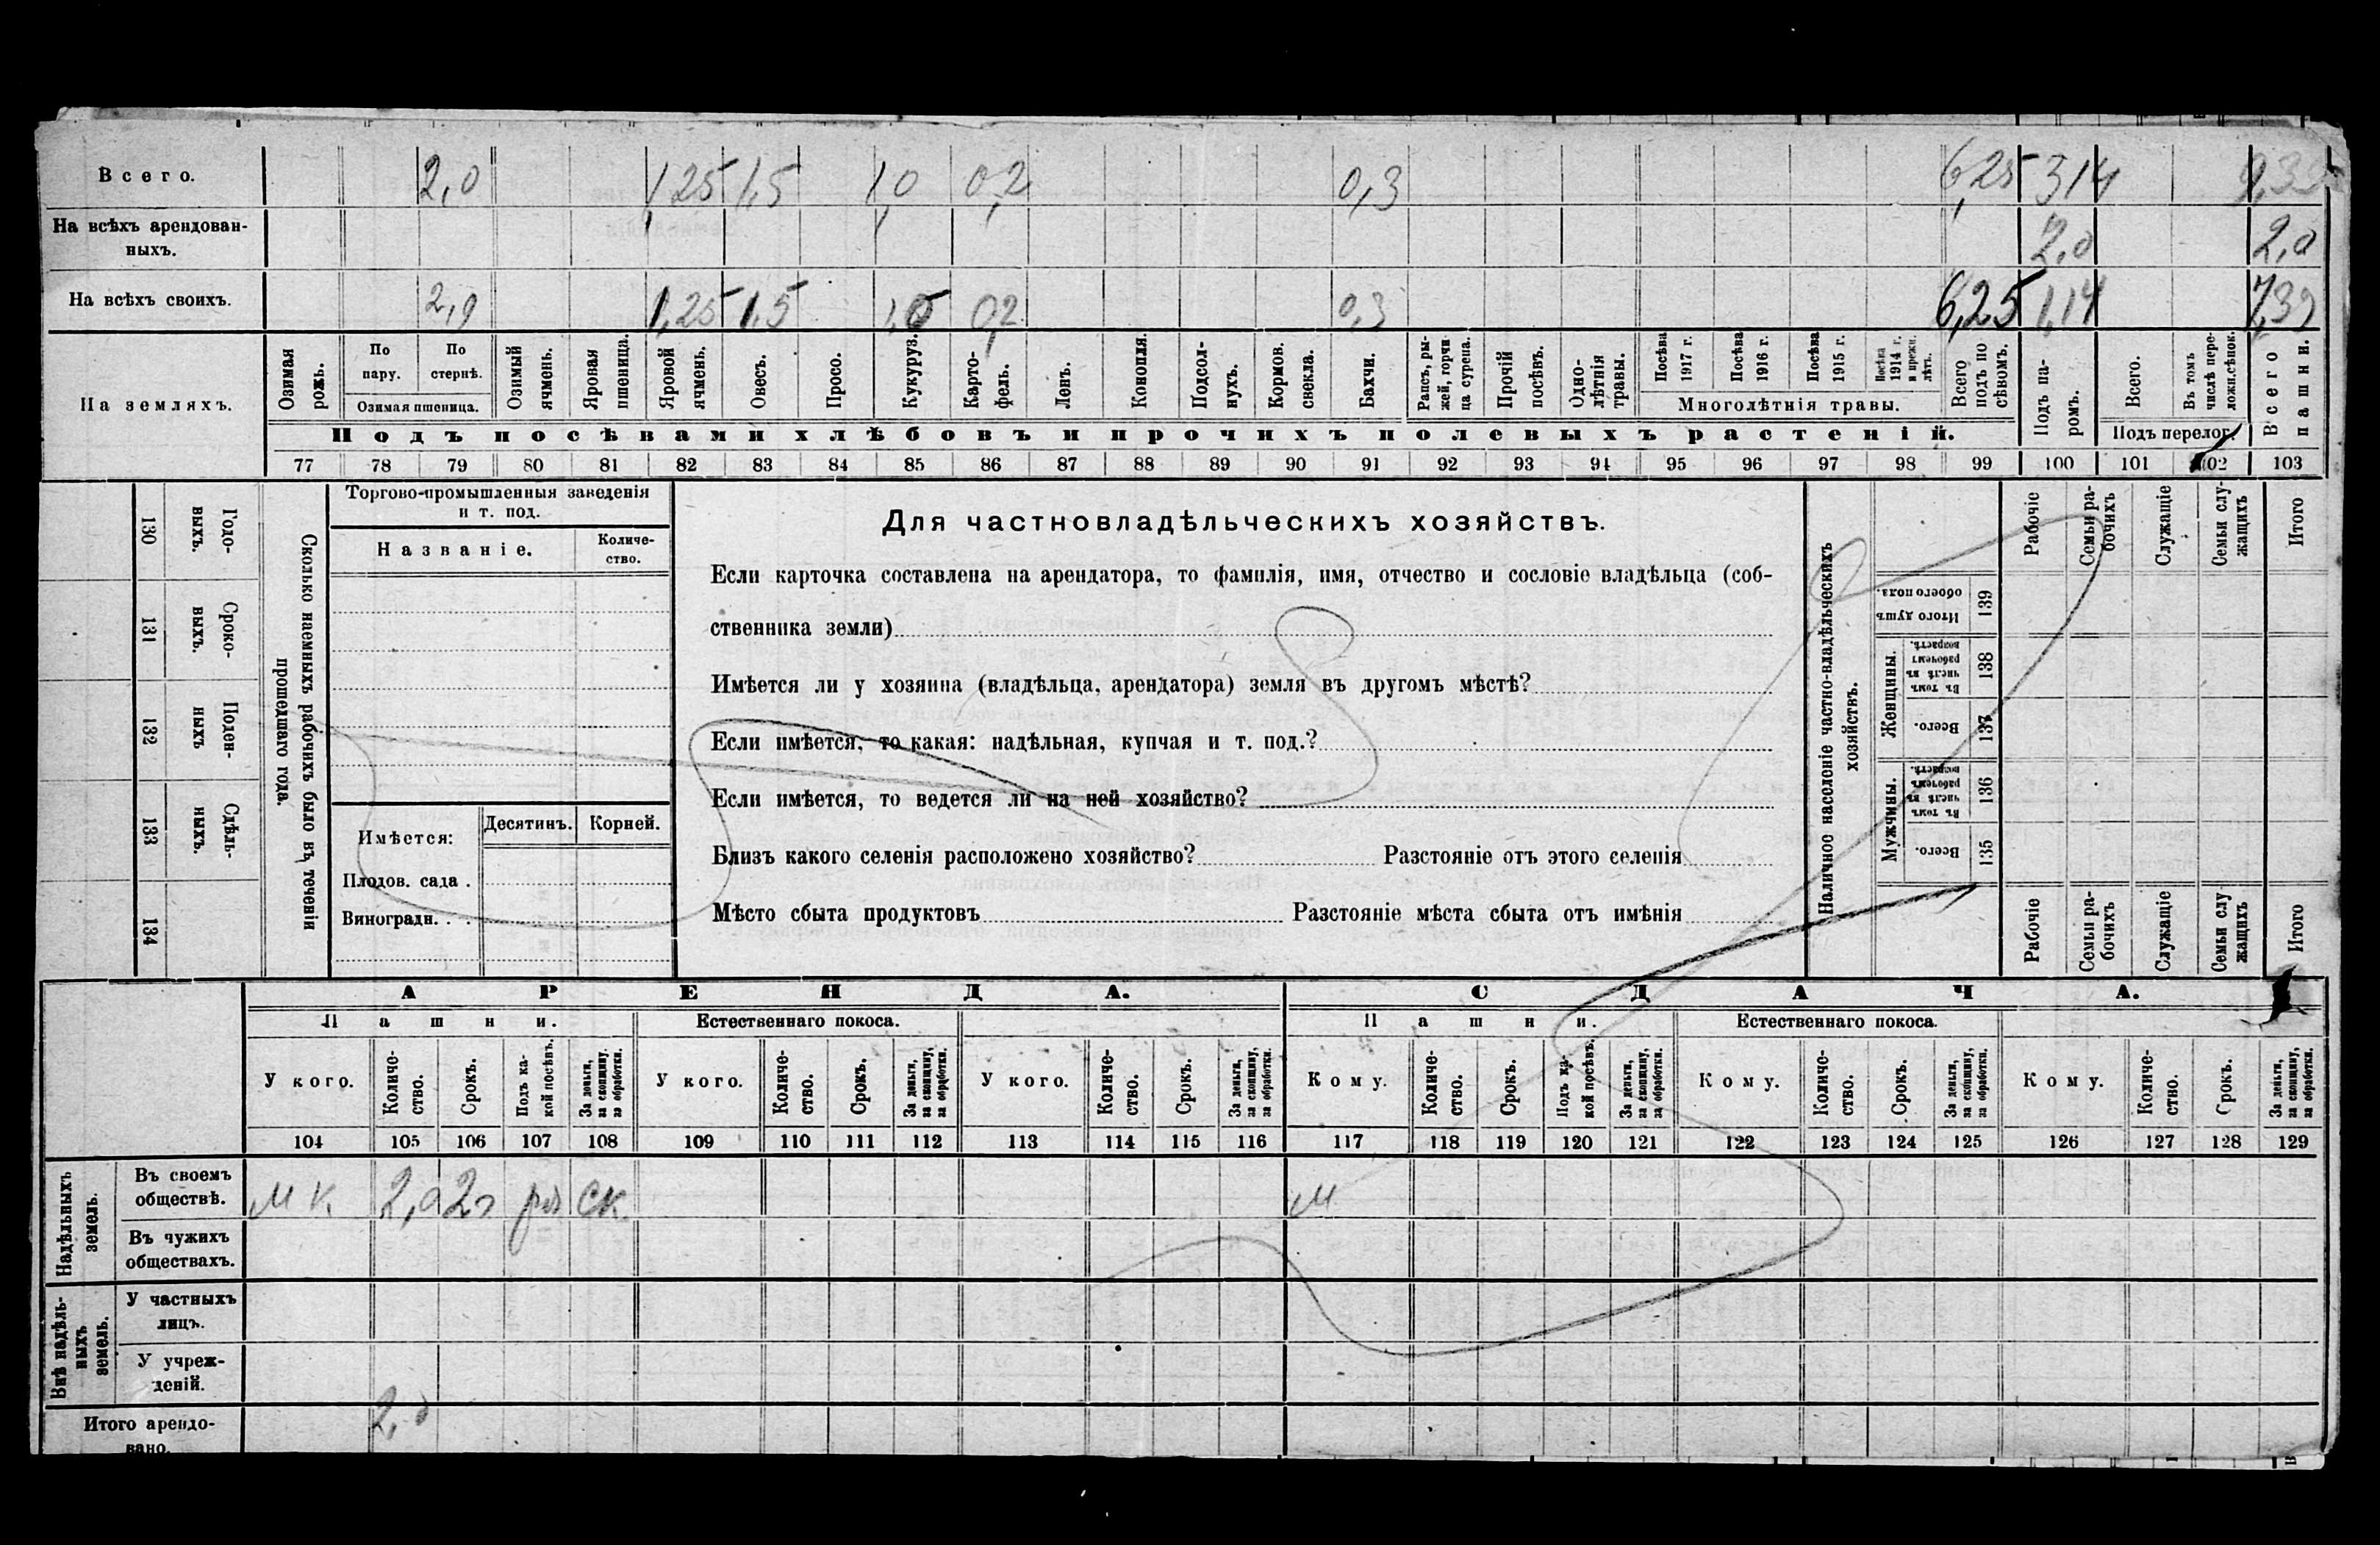 Всего. 2,0 1,25 1,5 1,0 0,2 0,3 6,25 3,14 9,39
На всѣхъ арендован-
ныхъ. 2,0 2,0
На всѣхъ своихъ. 2,0 1,25 1,5 1,0 0,2 0,3 6,25 1,14 7,39
На земляхъ.
Озимая рожь.
По пару.
По стернѣ.
Озимая пшеница.
Озимый ячмень.
Яровая пшеница.
Яровой ячмень.
Овесъ.
Просо.
Кукуруз.
Карто-
фель.
Ленъ.
Конопля.
Подсол-
нухъ.
Кормов. свекла.
Бахчи.
Рапсъ, ры-
жей, горчи-
ца сурепа.
Прочій посѣвъ.
Одно-
лѣтнія травы.
Посѣва 1917 г.
Посѣва 1916 г.
Посѣва 1915 г.
Посѣва 1914 г. и прежн. лѣтъ.
Многолѣтнія травы.
Всего подъ по
сѣвомъ.
Подъ па-
ромъ.
Всего.
Въ томъ числѣ пере-
ложн. сѣнок.
Подъ перелог.
Всего пашни.
Подъ посѣвами хлѣбовъ и прочихъ полевыхъ растеній.
77 78 79 80 81 82 83 84 85 86 87 88 89 90 91 92 93 94 95 96 97 98 99 100 101 102 103
130 Годо-
выхъ.
131 Сроко-
выхъ.
132 Поден-
ныхъ
133 Сдѣль-
ныхъ.
134
Сколько наемныхъ рабочихъ было въ теченіи
прошедшаго года.
Торгово-промышленныя заведенія
и т. под.
Названіе. Количе-
ство.
Имѣется: Десятинъ. Корней.
Плодов. сада .
Виноградн. . .
Для частновладѣльческихъ хозяйствъ.
Если карточка составлена на арендатора, то фамилія, имя, отчество и сословіе владѣльца (соб-
ственника земли)
Имѣется ли у хозяина (владѣльца, арендатора) земля въ другомъ мѣстѣ?
Если имѣется, то какая: надѣльная, купчая и т. под.?
Если имѣется, то ведется ли на ней хозяйство?
Близъ какого селенія расположено хозяйство? Разстояніе отъ этого селенія
Мѣсто сбыта продуктовъ Разстояніе мѣста сбыта отъ имѣнія
Наличное населеніе частно-владѣльческихъ
хозяйствъ.
Рабочіе
Семьи ра-
бочихъ
Служащіе
Семьи слу-
жащихъ
Итого
Итого душъ обоего пола. 139
Женщины.
Въ томъ числѣ въ рабочемъ возрастѣ. 138
Всего. 137
Мужчины.
Въ томъ числѣ въ рабочемъ возрастѣ. 136
Всего. 135
Рабочіе
Семьи ра-
бочихъ
Служащіе
Семьи слу
жащихъ
Итого
АРЕНДА. СДАЧА.
Пашни. Естественнаго покоса. Пашни. Естественнаго покоса.
У кого.
Количе-
ство.
Срокъ.
Подъ ка-
кой посѣвъ.
За деньги, за скопщину, за обработки.
У кого.
Количе-
ство.
Срокъ.
За деньги, за скопщину, за обработки.
У кого.
Количе-
ство.
Срокъ.
За деньги, за скопщину, за обработки.
Кому.
Количе-
ство.
Срокъ.
Подъ ка-
кой посѣвъ.
За деньги, за скопщину, за обработки.
Кому.
Количе-
ство.
Срокъ.
За деньги, за скопщину, за обработки.
Кому.
Количе-
ство.
Срокъ.
За деньги, за скопщину, за обработки.
104 105 106 107 108 109 110 111 112 113 114 115 116 117 118 119 120 121 122 123 124 125 126 127 128 129
Надѣльныхъ
земель.
Въ своемъ
обществѣ. м к 2,0 2г ск. м
Въ чужихъ
обществахъ.
Внѣ надѣль-
ныхъ
земель.
У частныхъ
лицъ.
У учреж-
деній.
Итого арендо-
вано. 2,0